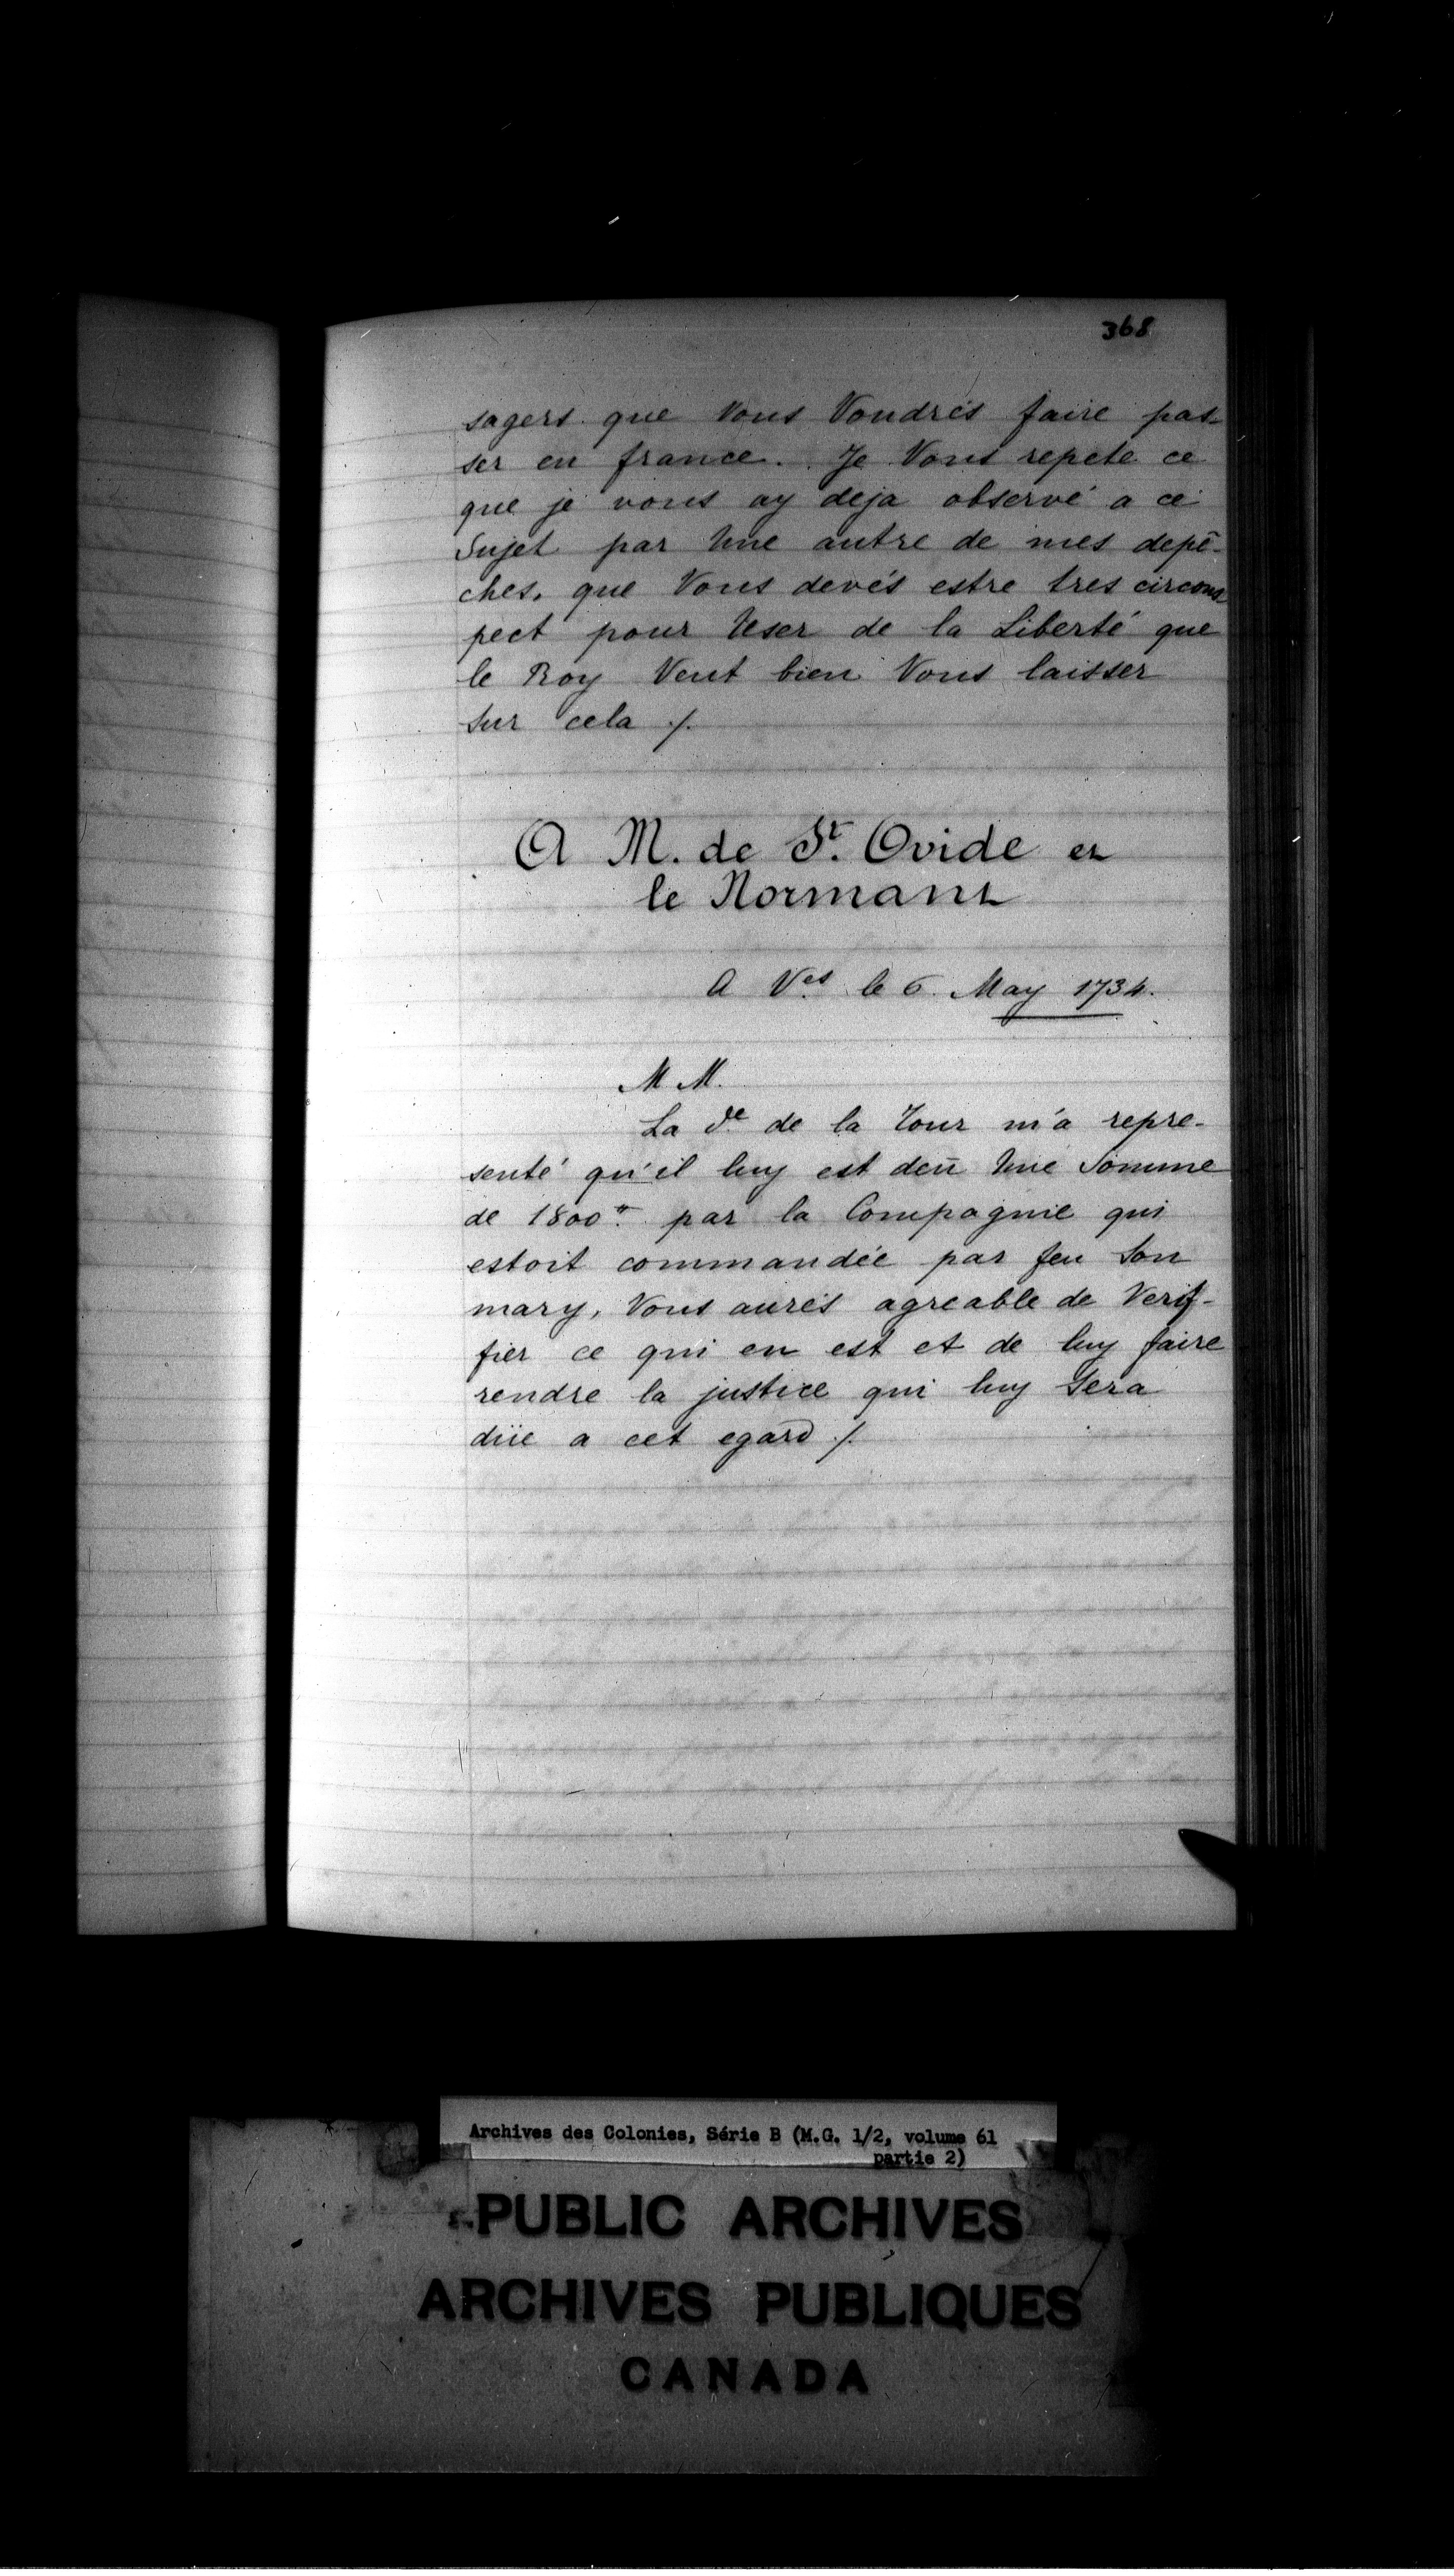 368
sagers que Vous Voudrés faire pas-
ser en france. Je Vous repete ce
que je vous ay deja observé a ce
Sujet par Une autre de mes depê-
ches, que Vous devés estre tres circons
pect pour User de la Liberté que
le Roy Veut bien Vous laisser
Sur cela ./.
A M. de St. Ovide et
le Normant
A Ves le 6 May 1734.
M M.
La de de la Tour m'a repre-
senté qu'il luy est deü Une Somme
de 1800tt. par la Compagnie qui
estoit commandée par feu Son
mary, Vous aurés agreable de Verif-
fier ce qui en est et de luy faire
rendre la justice qui luy Sera
düe a cet egard ./.
Archives des Colonies, Série B (M.G. 1/2, volume 61
partie 2)
PUBLIC ARCHIVES
ARCHIVES PUBLIQUES
CANADA